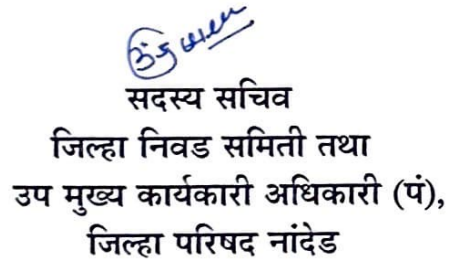 सदस्य सचिव
जिल्हा निवड समिती तथा
उप मुख्य कार्यकारी अधिकारी (पं),
जिल्हा परिषद नांदेड